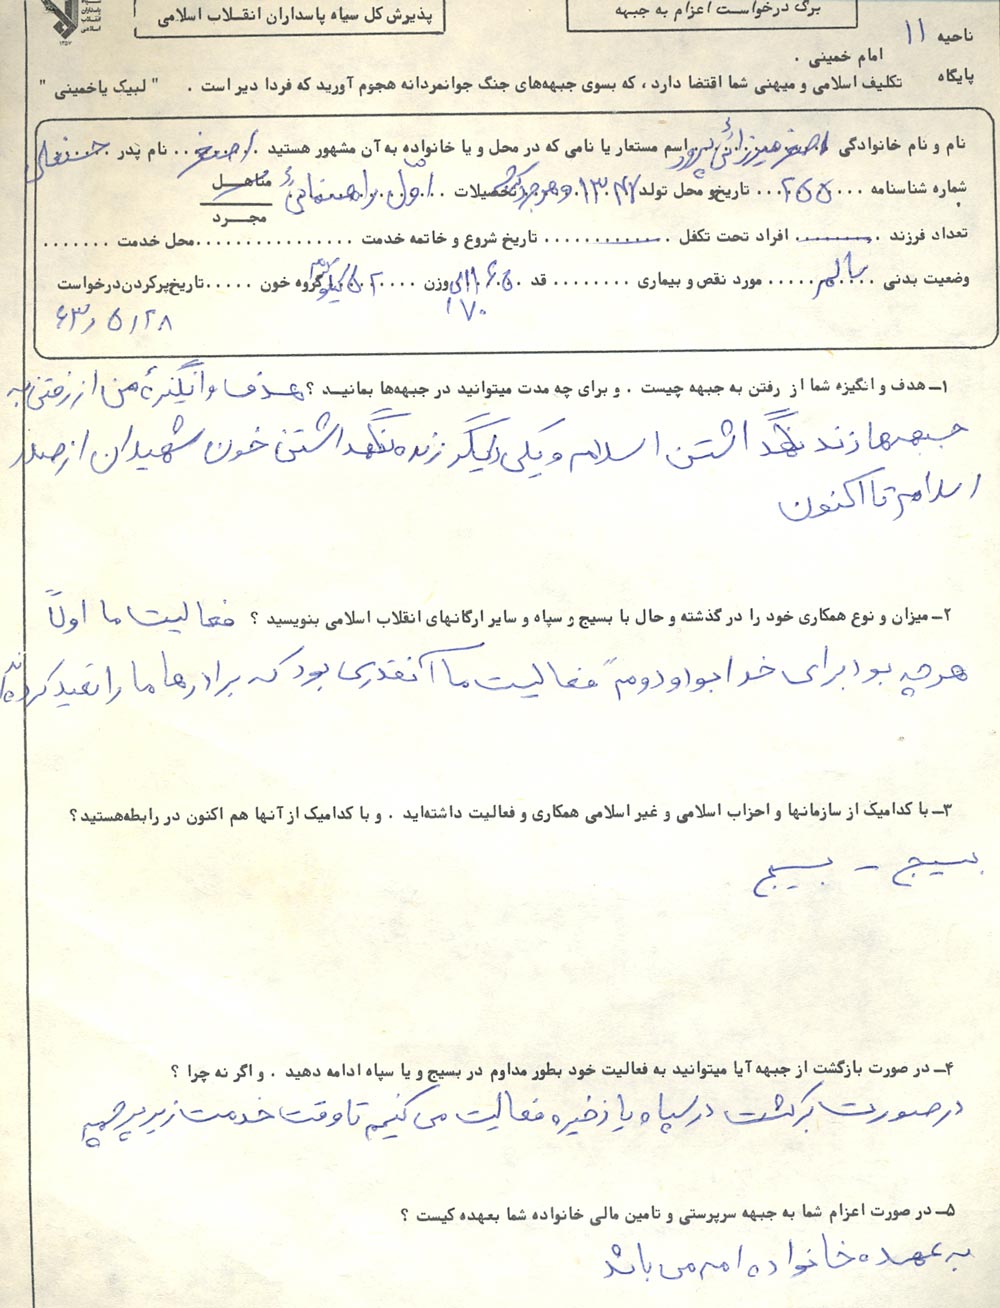 برگ درخواست اعزام به جبهه
پذیرش کل سپاه پاسداران انقلاب اسلامی
سپاه پاسداران انقلاب اسلامی
۱۳۵۷
ناحیه ۱۱
پایگاه
امام خمینی .
تکلیف اسلامی و میهنی شما اقتضا دارد ، که بسوی جبهه‌های جنگ جوانمردانه هجوم آورید که فردا دیر است . " لبیک یا خمینی "
نام و نام خانوادگی اصغر میرزائی پرور اسم مستعار یا نامی که در محل و یا خانواده به آن مشهور هستید . اصغر . . نام پدر حسنعلی
شماره شناسنامه . . . ۲۵۵ . . . تاریخ و محل تولد ۱۳۴۷ . تحصیلات . اول راهنمائی متاهل
مجرد
تعداد فرزند . ........ افراد تحت تکفل . .......... تاریخ شروع و خاتمه خدمت . . . . . . . . . . . . . . . محل خدمت . . . . . . .
وضعیت بدنی . . سالم . . . . . مورد نقص و بیماری . . . . . . . . قد ۱۶۵ الی وزن . . . . ۵۲ کیلو گروه خون . . . . . تاریخ پر کردن درخواست
۱۷۰
۶۳/۵/۲۸
۱ـ هدف و انگیزه شما از رفتن به جبهه چیست . و برای چه مدت میتوانید در جبهه‌ها بمانید ؟ هدف و انگیزهٔ من از رفتن به
جبهها زند نگهداشتن اسلام و یکی دیگر زنده نگهداشتن خون شهیدان از صدر
اسلام تا اکنون
۲ـ میزان و نوع همکاری خود را در گذشته و حال با بسیج و سپاه و سایر ارگانهای انقلاب اسلامی بنویسید ؟ فعالیت ما اولاً
هر چه بود برای خدا بود و دوم فعالیت ما آنقدری بود که برادرها ما را تقید کرده‌اند
۳ـ با کدامیک از سازمانها و احزاب اسلامی و غیر اسلامی همکاری و فعالیت داشته‌اید . و با کدامیک از آنها هم اکنون در رابطه هستید ؟
بسیج - بسیج
۴ـ در صورت بازگشت از جبهه آیا میتوانید به فعالیت خود بطور مداوم در بسیج و یا سپاه ادامه دهید . و اگر نه چرا ؟
در صورت برگشت در سپاه یا ذخیره فعالیت می کنیم تا وقت خدمت زیر پرچم
۵ـ در صورت اعزام شما به جبهه سرپرستی و تامین مالی خانواده شما بعهده کیست ؟
به عهده خانواده ام می باشد